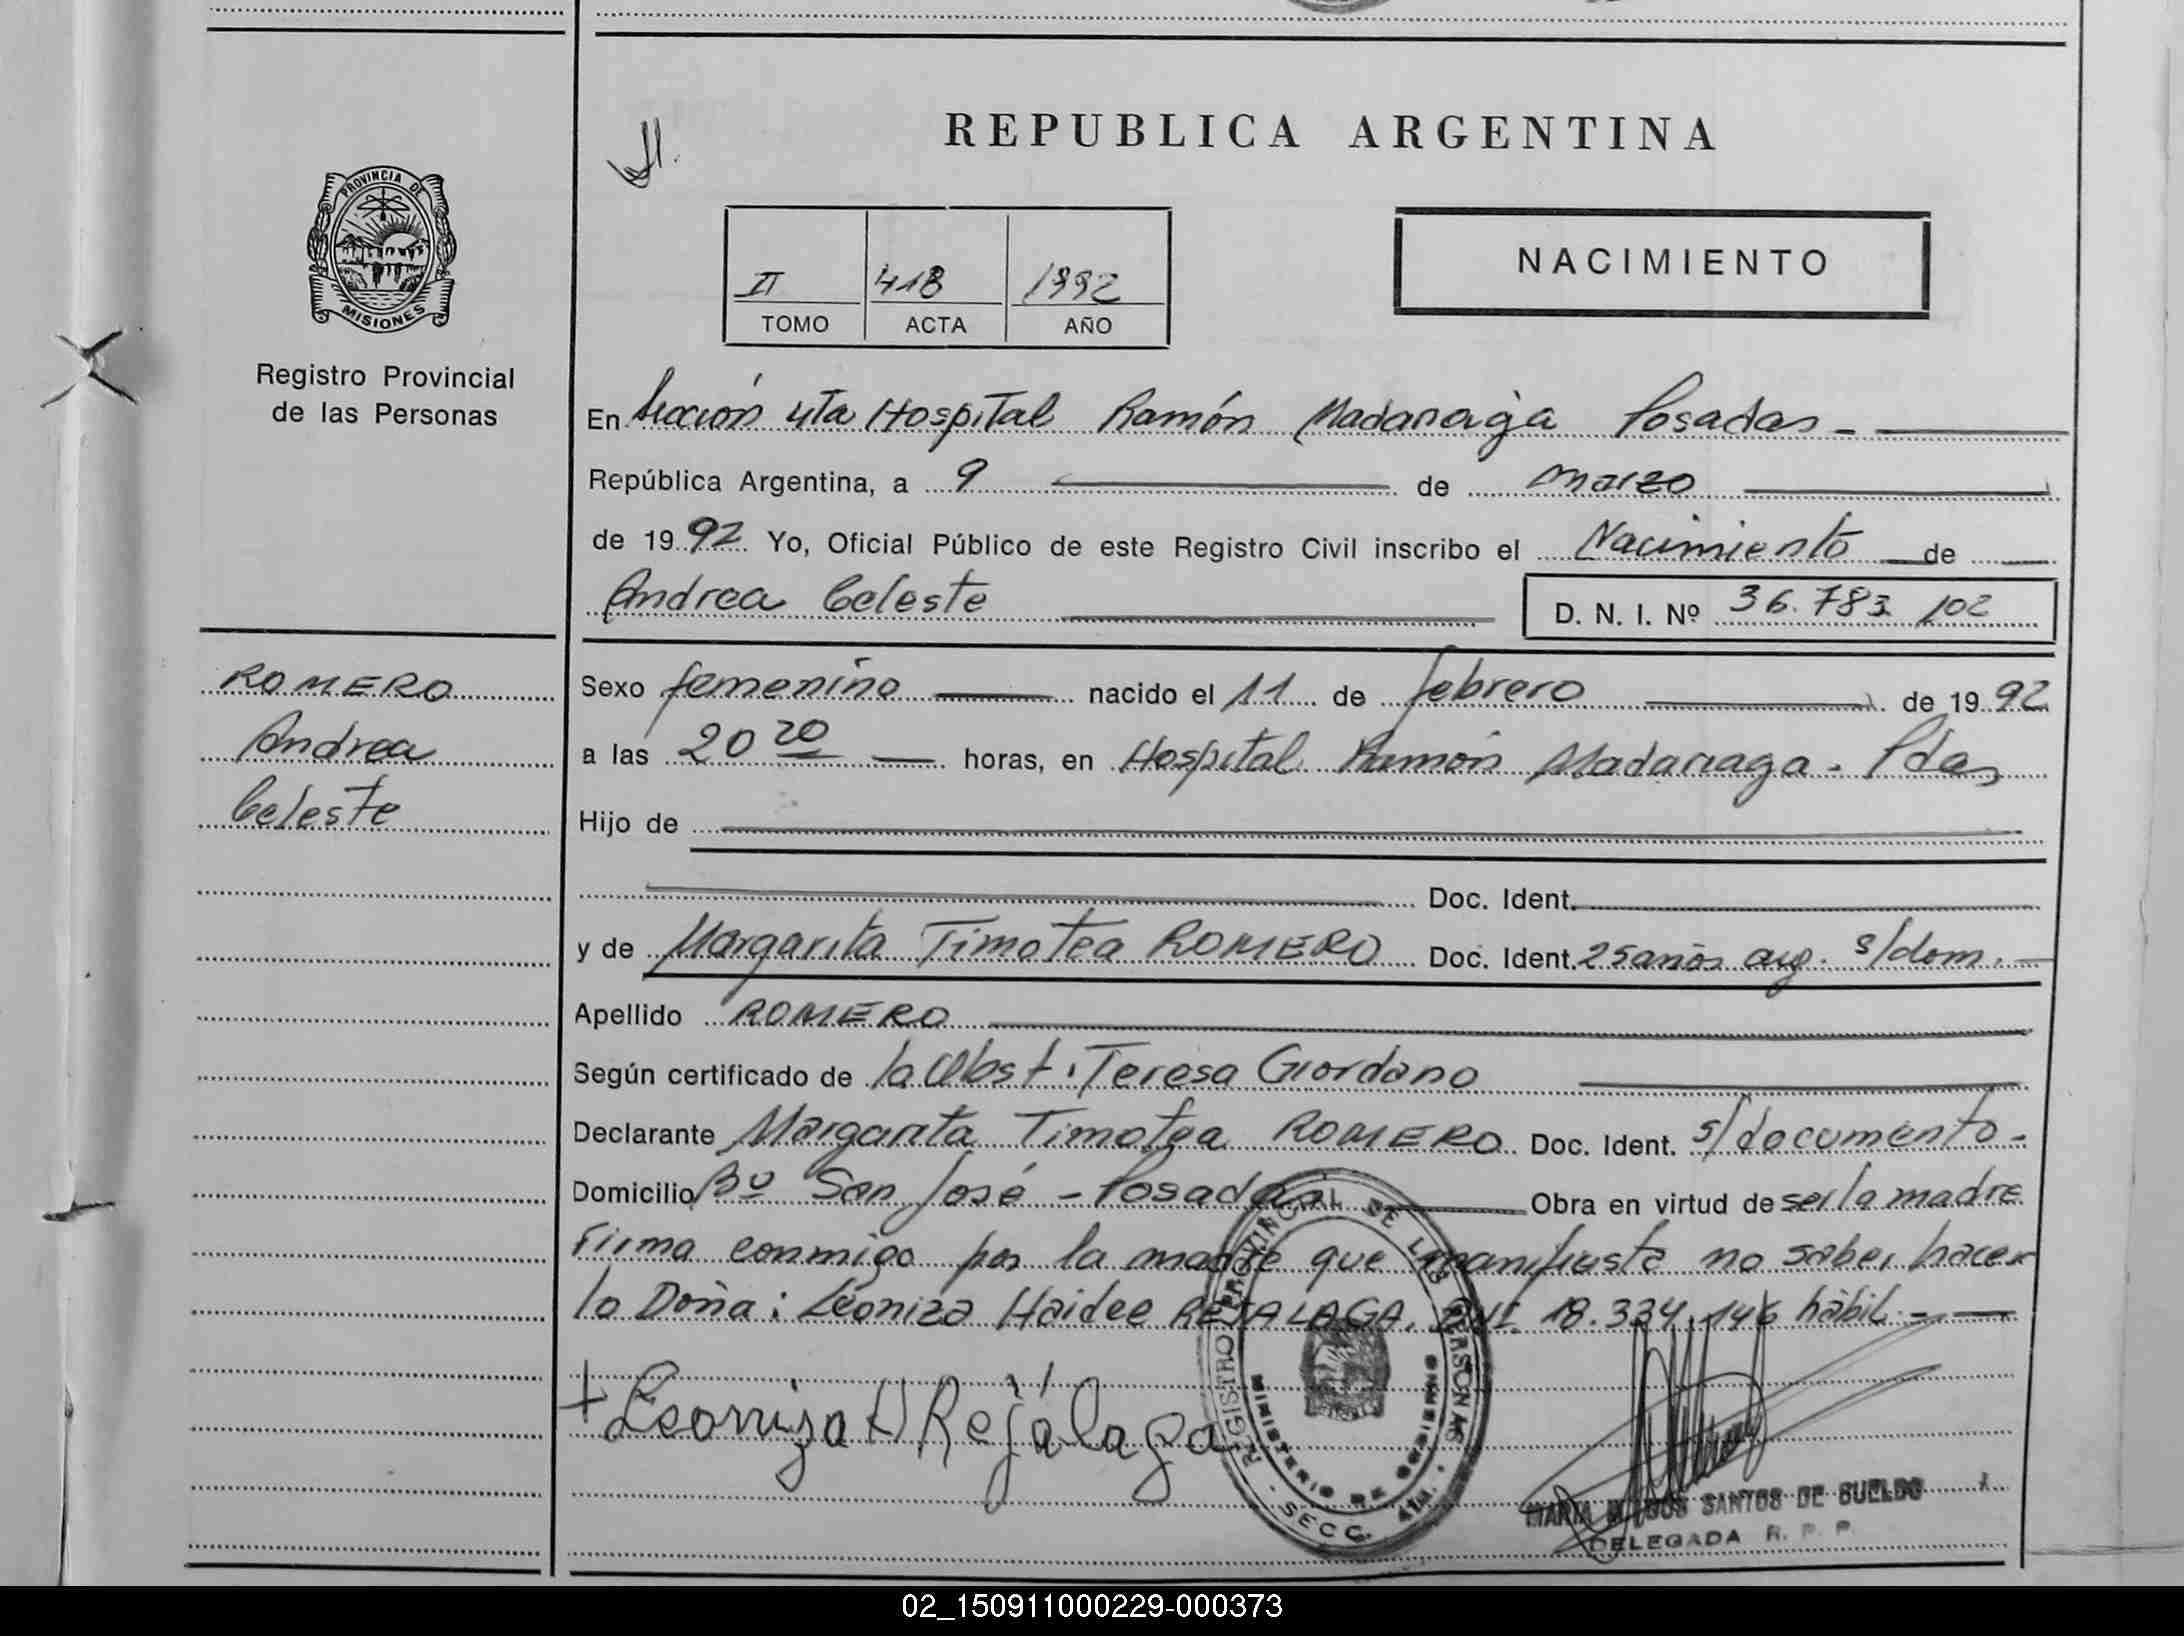 REPUBLICA ARGENTINA
PROVINCIA DE
MISIONES
Registro Provincial
de las Personas
II 418 1992
TOMO ACTA AÑO
NACIMIENTO
En Sección 4ta Hospital Ramón Madariaga Posadas -
República Argentina, a 9 de marzo
de 1992 Yo, Oficial Público de este Registro Civil inscribo el Nacimiento de
Andrea Celeste
D. N. I. Nº 36.783.102
ROMERO
Andrea
Celeste
Sexo femenino nacido el 11 de febrero de 1992
a las 20 20 horas, en Hospital Ramón Madariaga - Pdas
Hijo de
Doc. Ident.
y de Margarita Timotea ROMERO Doc. Ident. 25 años arg. s/dom.
Apellido ROMERO
Según certificado de la Obst. Teresa Giordano
Declarante Margarita Timotea ROMERO Doc. Ident. s/documento -
Domicilio Bº San José - Posadas Obra en virtud de ser la madre
Firma conmigo por la madre que manifiesta no saber hacer
lo Doña: Leoniza Haidee REJALAGA, DNI 18.334.146 hábil -
+ Leoniza H Rejálaga
REGISTRO PROVINCIAL DE LAS PERSONAS
MINISTERIO DE GOBIERNO
SECC. 4TA.
MARIA SANTOS DE SUELDO
DELEGADA R. P. P.
02_150911000229-000373